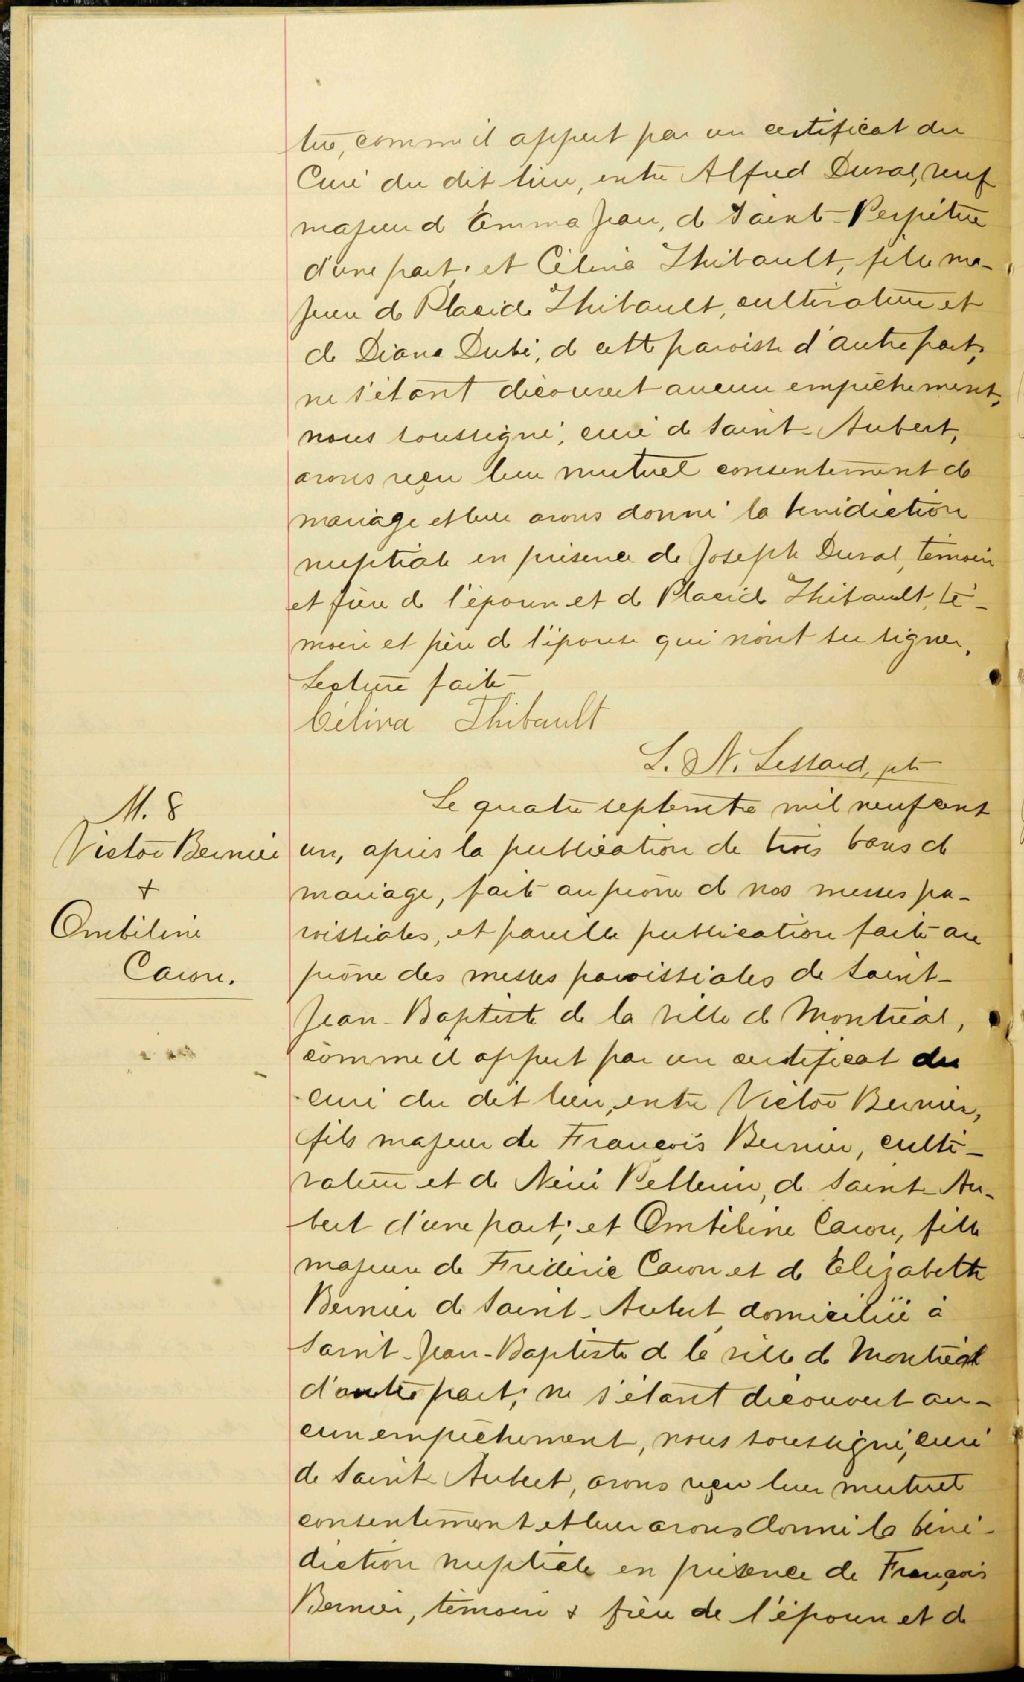 tue, comme il appert par un certificat du
Curé du dit lieu, entre Alfred Duval, veuf
majeur d'Emma Jean, de Saint-Perpétue
d'une part; et Célina Thibault, fille ma-
jeure de Placide Thibault, cultivateur et
de Diana Dubé, de cette paroisse d'autre part;
ne s'étant découvert aucun empêchement,
nous soussigné, curé de Saint-Aubert,
avons reçu leur mutuel consentement de
mariage et leur avons donné la bénédiction
nuptiale en présence de Joseph Duval, témoin
et frère de l'époux et de Placide Thibault, té-
moin et père de l'épouse qui n'ont su signer.
Lecture faite
Célina Thibault
L. N. Lessard, ptre
M. 8
Victor Bernier
+
Ombéline
Caron.
Le quatre septembre mil neuf cent
un, après la publication de trois bans de
mariage, faite au prône de nos messes pa-
roissiales, et pareille publication faite au
prône des messes paroissiales de Saint-
Jean-Baptiste de la ville de Montréal,
comme il appert par un certificat du
curé du dit lieu, entre Victor Bernier,
fils majeur de François Bernier, culti-
vateur et de Pellerin, de Saint-Au-
bert d'une part; et Ombéline Caron, fille
majeure de Frédéric Caron et de Elizabeth
Bernier de Saint-Aubert, domiciliée à
Saint-Jean-Baptiste de la ville de Montréal
d'autre part; ne s'étant découvert au-
cun empêchement, nous soussigné, curé
de Saint Aubert, avons reçu leur mutuel
consentement et leur avons donné la béné-
diction nuptiale en présence de François
Bernier, témoin & frère de l'époux et de